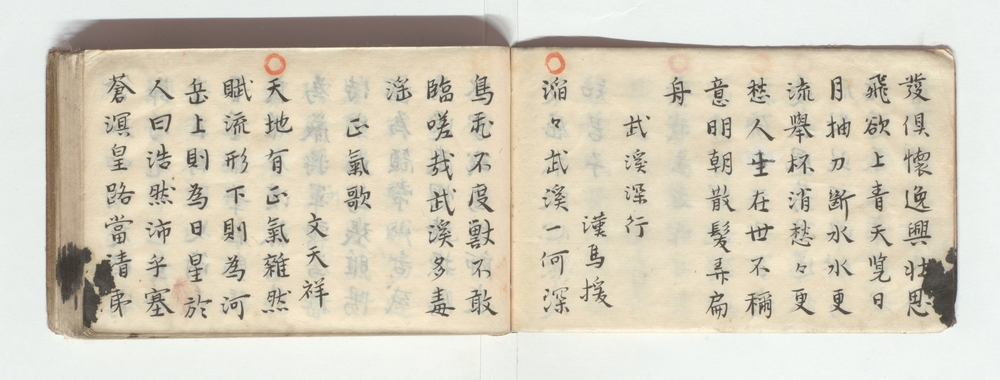 發俱懷逸興壮思
飛欲上青天覽日
月抽刀斷水水更
流舉杯消愁々更
愁人生在世不稱
意明朝散髮弄扁
舟
武溪深行
漢馬援
滔々武溪一何深
鳥飛不度獸不敢
臨嗟哉武溪多毒
淫
正氣歌
文天祥
天地有正氣雜然
賦流形下則為河
岳上則為日星於
人曰浩然沛乎塞
蒼溟皇路當清